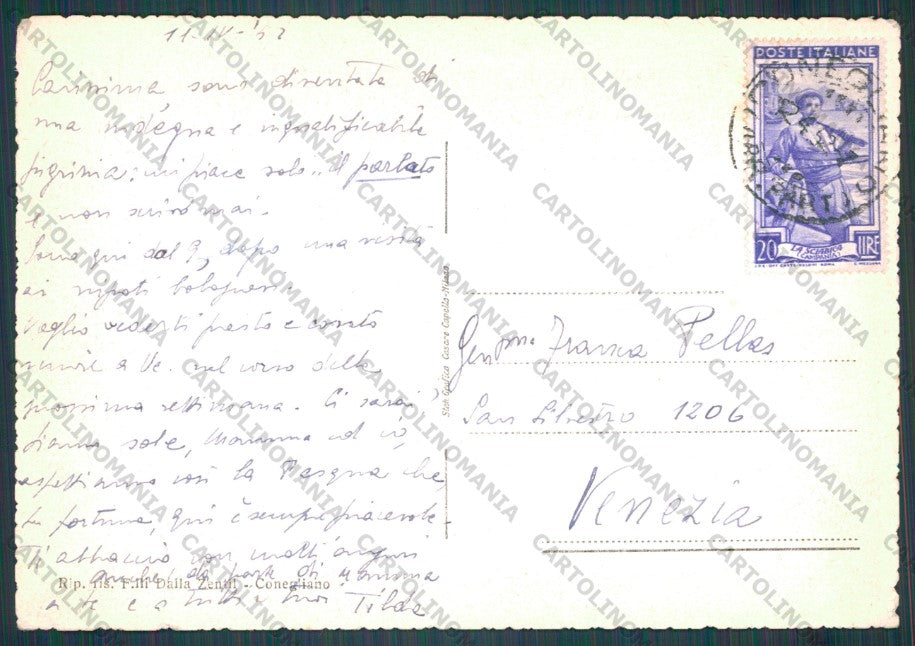 11-IV-'52
Carissima sono diventata di
una indegna e inqualificabile
pigrizia: mi piace solo.. il parlato
e non scrivo mai.
Sono qui dal 9, dopo una visita
ai nipoti bolognesi.
Voglio vederti presto e conto
venire a Ve. nel corso della
prossima settimana. Ci sarai?
siamo sole, Mamma ed io,
aspettiamo così la Pasqua che
per fortuna, qui è sempre piacevole.
Ti abbraccio con molti auguri
anche da parte di Mamma
a te e a tutti i tuoi Tilde
Rip. ris. F.lli Dalla Zentil - Conegliano
Stab. Grafico Cesare Capello-Milano
POSTE ITALIANE
20 LA SCIABICA (CAMPANIA) LIRE
CONEGLIANO
Gen.ma Franca Pellas
San Silvestro 1206
Venezia
CARTOLINOMANIA